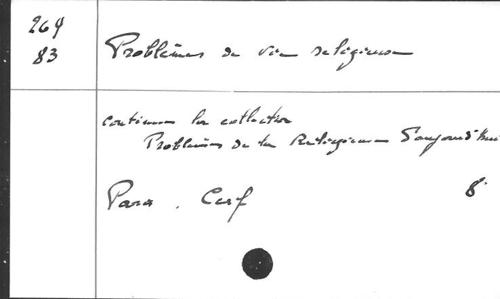 264
83
Problèmes de vie religieuse
continue la collection
Problèmes de la Religieuse d'aujourd'hui
Paris. Cerf 8°